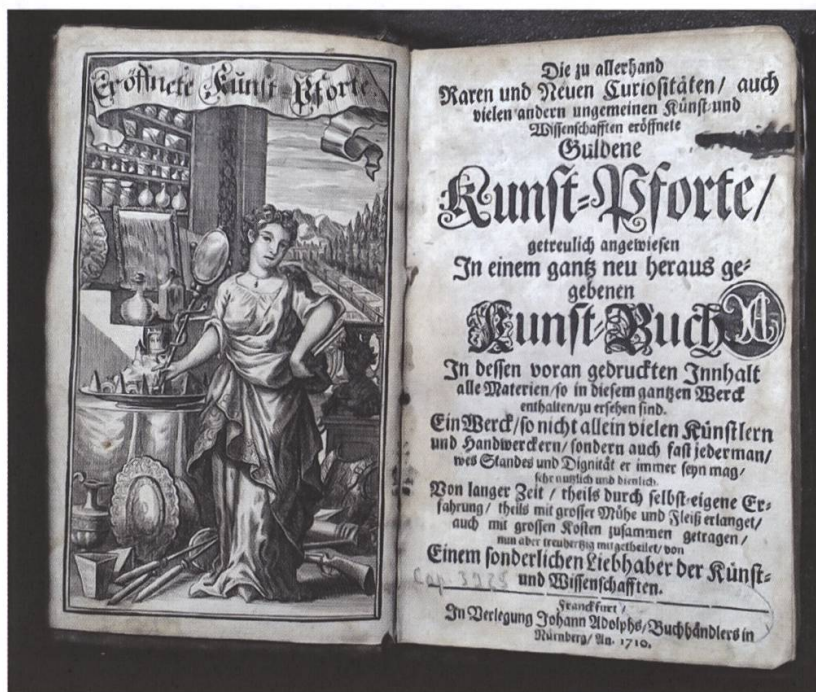 Eröffnete Kunst-Pforte.
Die zu allerhand
Raren und Neuen Curiositäten/ auch
vielen andern ungemeinen Künst- und
Wissenschafften eröffnete
Guldene
Kunst-Pforte/
getreulich angewiesen
In einem gantz neu heraus ge-
gebenen
Kunst-Buch
In dessen voran gedruckten Innhalt
alle Materien/ so in diesem gantzen Werck
enthalten/ zu ersehen sind.
Ein Werck/ so nicht allein vielen Künstlern
und Handwerckern/ sondern auch fast jederman/
wes Standes und Dignität er immer seyn mag/
sehr nutzlich und dienlich.
Von langer Zeit/ theils durch selbst-eigene Er-
fahrung/ theils mit grosser Mühe und Fleiß erlanget/
auch mit grossen Kosten zusammen getragen/
nun aber treuhertzig mitgetheilet/ von
Einem sonderlichen Liebhaber der Künst-
und Wissenschafften.
Franckfurt/
In Verlegung Johann Adolphs/ Buchhändlers in
Nürnberg/ An. 1710.